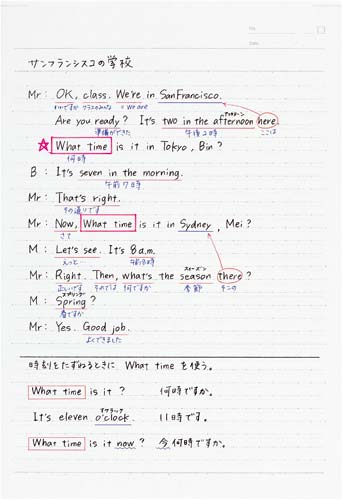 サンフランシスコの学校
Mr: OK, class. We're in SanFrancisco.
いいですか クラスのみんな = we are
アフタヌーン
Are you ready? It's two in the afternoon here.
準備ができた 午後2時 ここは
☆ What time is it in Tokyo, Bin?
何時
B: It's seven in the morning.
午前7時
Mr: That's right.
その通りです
Mr: Now, What time is it in Sydney, Mei?
さて
M: Let's see. It's 8 a.m.
えっと… 午前8時
スィーズーン
Mr: Right. Then, what's the season there?
正しいです それでは 何ですか 季節 そこの
スプリング
M: Spring?
春ですか
Mr: Yes. Good job.
よくできました
時刻をたずねるときに What time を使う。
What time is it? 何時ですか。
オクラック
It's eleven o'clock. 11時です。
What time is it now? 今何時ですか。